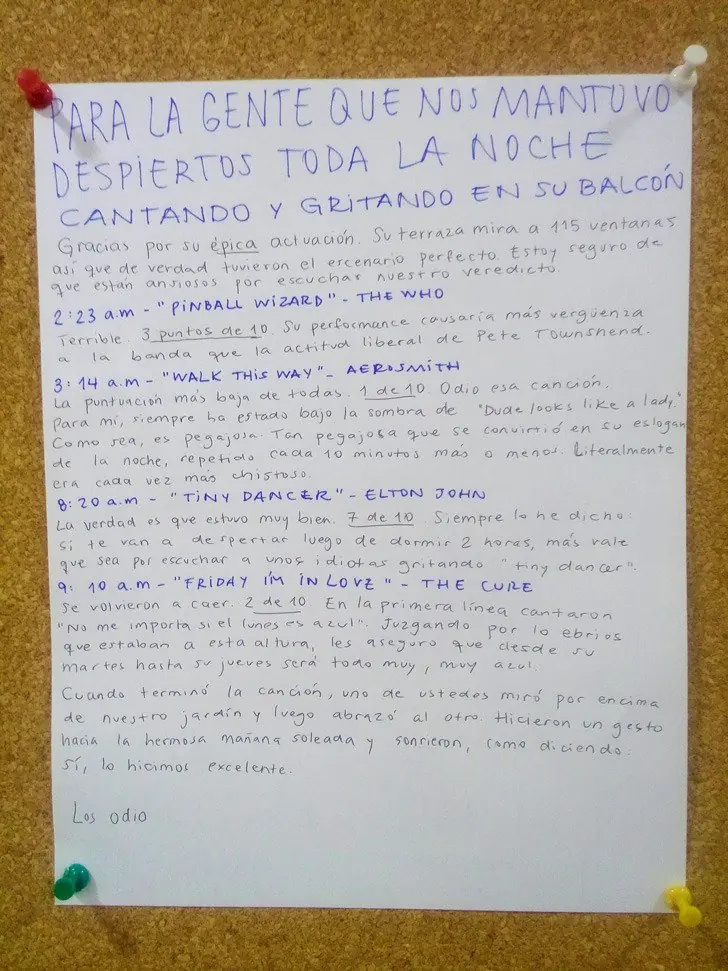 PARA LA GENTE QUE NOS MANTUVO
DESPIERTOS TODA LA NOCHE
CANTANDO Y GRITANDO EN SU BALCÓN
Gracias por su épica actuación. Su terraza mira a 115 ventanas
así que de verdad tuvieron el escenario perfecto. Estoy seguro de
que están ansiosos por escuchar nuestro veredicto.
2:23 a.m - "PINBALL WIZARD" - THE WHO
Terrible. 3 puntos de 10. Su performance causaría más vergüenza
a la banda que la actitud liberal de Pete Townshend.
3:14 a.m - "WALK THIS WAY" - AEROSMITH
La puntuación más baja de todas. 1 de 10. Odio esa canción.
Para mí, siempre ha estado bajo la sombra de "Dude looks like a lady."
Como sea, es pegajosa. Tan pegajosa que se convirtió en su eslogan
de la noche, repetido cada 10 minutos más o menos. Literalmente
era cada vez más chistoso.
8:20 a.m - "TINY DANCER" - ELTON JOHN
La verdad es que estuvo muy bien. 7 de 10. Siempre lo he dicho:
si te van a despertar luego de dormir 2 horas, más vale
que sea por escuchar a unos idiotas gritando "tiny dancer".
9:10 a.m - "FRIDAY I'M IN LOVE" - THE CURE
Se volvieron a caer. 2 de 10. En la primera línea cantaron
"No me importa si el lunes es azul". Juzgando por lo ebrios
que estaban a esta altura, les aseguro que desde su
martes hasta su jueves será todo muy, muy azul.
Cuando terminó la canción, uno de ustedes miró por encima
de nuestro jardín y luego abrazó al otro. Hicieron un gesto
hacia la hermosa mañana soleada y sonrieron, como diciendo:
sí, lo hicimos excelente.
Los odio